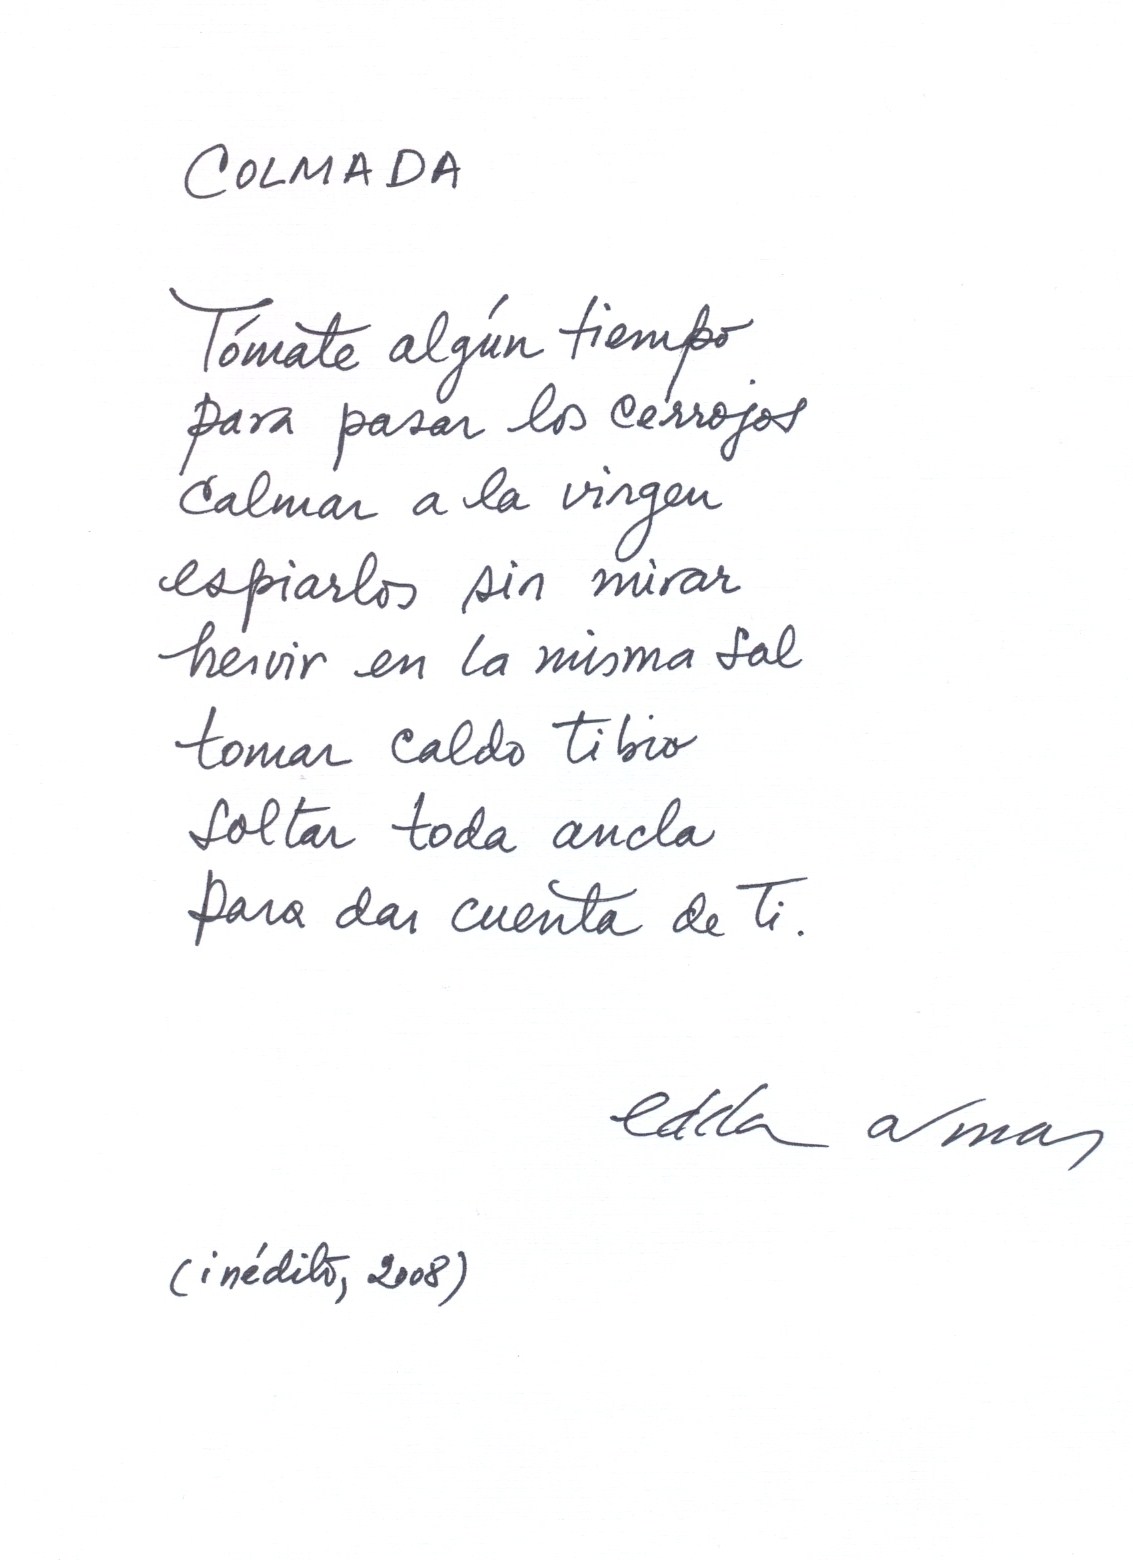 COLMADA
Tómate algún tiempo
para pasar los cerrojos
calmar a la virgen
espiarlos sin mirar
hervir en la misma sal
tomar caldo tibio
soltar toda ancla
para dar cuenta de ti.
edda armas
(inédito, 2008)